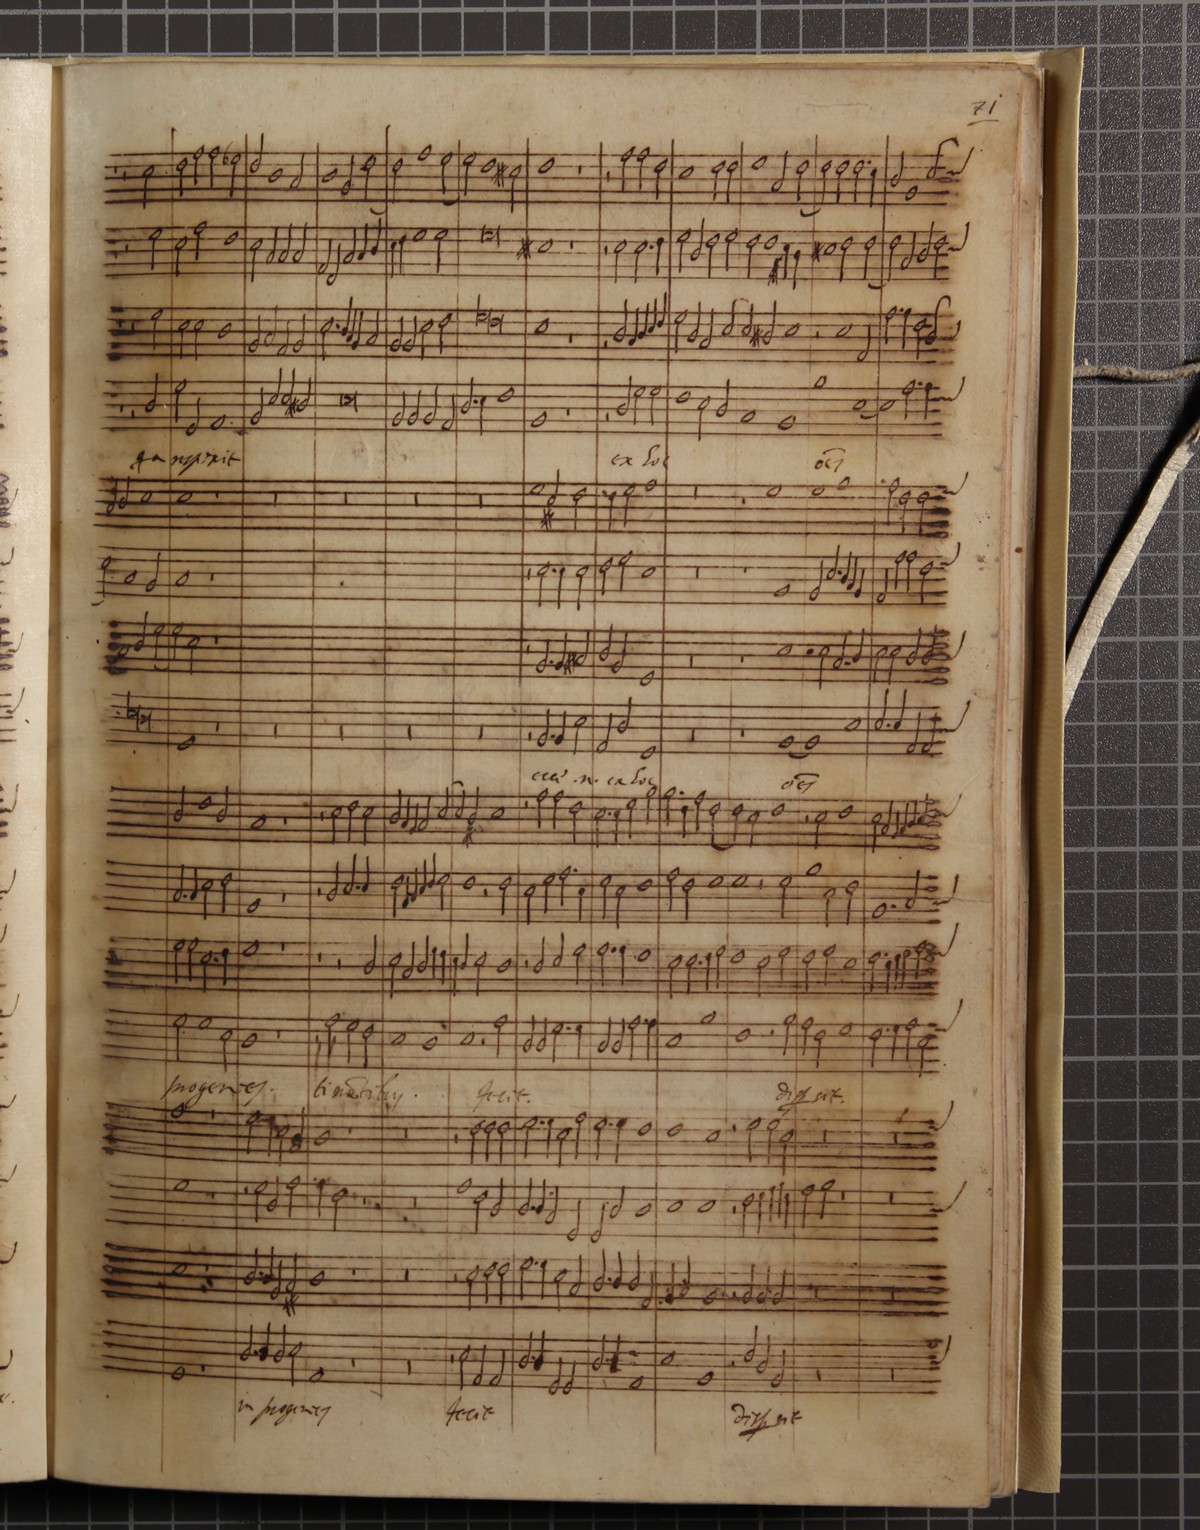 71
qa respexit ex hoc oēs
ecce .n. ex hoc oēs
progenies. timētibus. fecit. dispsit.
in progenies fecit dispsit